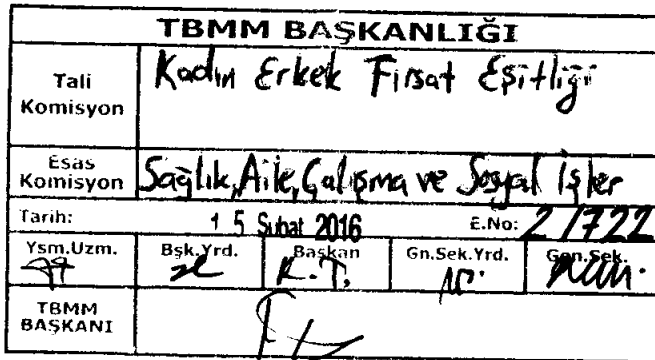 TBMM BAŞKANLIĞI
Tali Komisyon Kadın Erkek Fırsat Eşitliği
Esas Komisyon Sağlık, Aile, Çalışma ve Sosyal İşler
Tarih: 15 Şubat 2016 E.No: 2/722
Ysm.Uzm. Bşk.Yrd. Başkan Gn.Sek.Yrd. Gen.Sek.
K.T.
TBMM BAŞKANI